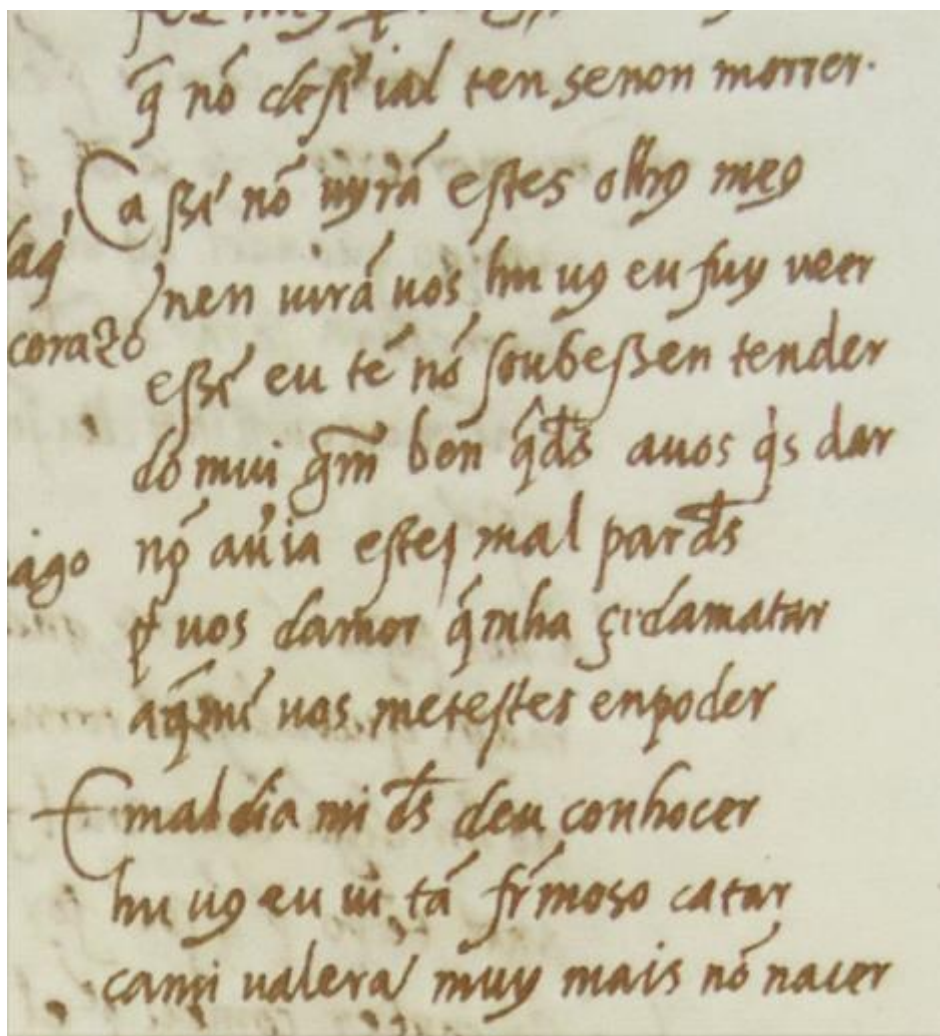 q̃ nō desẽial ten senon morrer.
Ca sſi nō uyrã estes olhꝯ meꝯ
nen uirã uos hu uꝯ eu fuy ueer
essi eu tẽ nō soubessen tender
do mui grm̃ ben q̃ d̃s auos q̇s dar
coraçō
nō auia estes mal par d̃s
ago
ꝑ uos damor q̃ mha
aq̃ mi uos metestes enpoder
E mal dia mi d̃s deu conhocer
hu uꝯ eu ui tã fr̃moso catar
cami ualera muy mais nō nacer